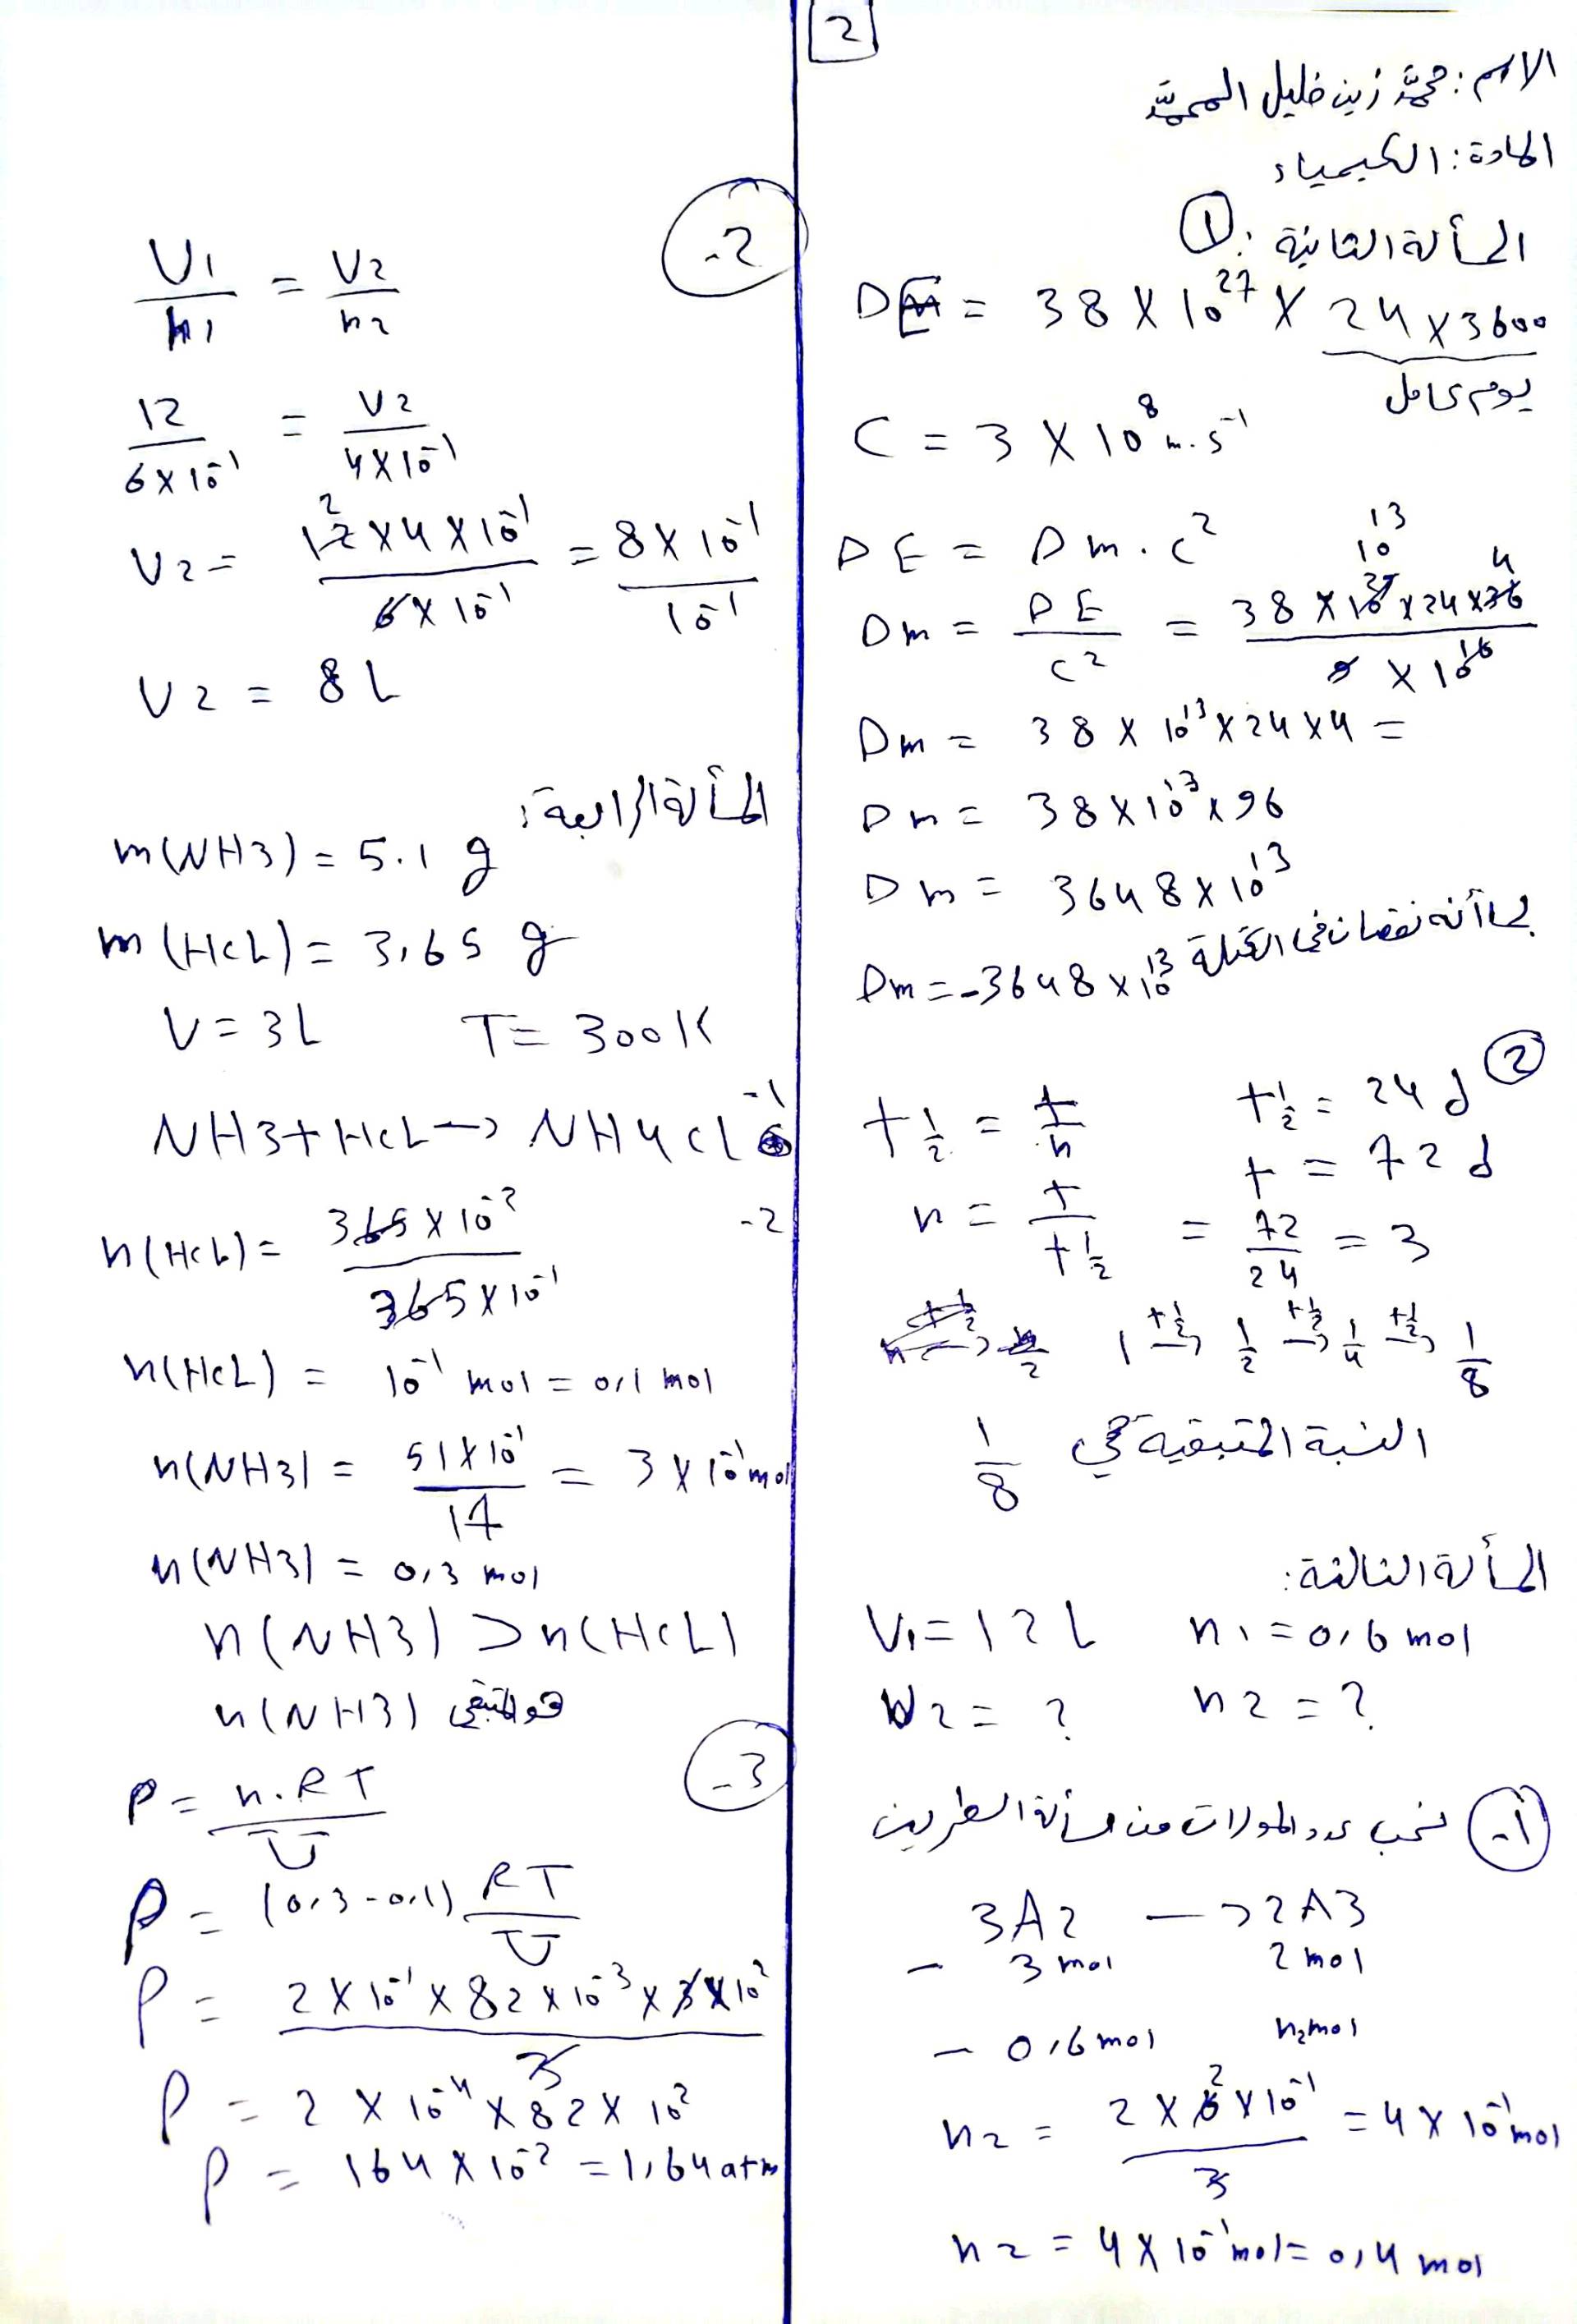 2
الاسم: محمَّد زين خليل المحمَّد
المادة: الكيمياء
المسألة الثانية: ①
DE = 38 × 10^27 × 24 × 3600
يوم كامل
C = 3 × 10^8 m.s^-1
DE = Dm . c^2
Dm = DE / c^2 = 38 × 10^27 × 24 × 36 / 9 × 10^16
10^13 4
Dm = 38 × 10^13 × 24 × 4 =
Dm = 38 × 10^13 × 96
Dm = 3648 × 10^13
بما أنه نقصان في الكتلة
Dm = -3648 × 10^13
②
t1/2 = t/n t1/2 = 24 d
t = 72 d
n = t / t1/2 = 72/24 = 3
1 t1/2→ 1/2 t1/2→ 1/4 t1/2→ 1/8
النسبة المتبقية هي 1/8
المسألة الثالثة:
V1 = 12 L n1 = 0,6 mol
V2 = ? n2 = ?
1- نحسب عدد المولات من مسألة الطريين
3A2 → 2A3
- 3 mol 2 mol
- 0,6 mol n2 mol
n2 = 2 × 6 × 10^-1 / 3 = 4 × 10^-1 mol
2
n2 = 4 × 10^-1 mol = 0,4 mol
-2
V1/n1 = V2/n2
12 / 6×10^-1 = V2 / 4×10^-1
V2 = 12 × 4 × 10^-1 / 6 × 10^-1 = 8 × 10^-1 / 10^-1
2
V2 = 8 L
المسألة الرابعة:
m(NH3) = 5.1 g
m(HCL) = 3,65 g
V = 3 L T = 300 K
NH3 + HCL → NH4Cl -1
n(HCL) = 365 × 10^-2 / 365 × 10^-1 -2
n(HCL) = 10^-1 mol = 0,1 mol
n(NH3) = 51 × 10^-1 / 17 = 3 × 10^-1 mol
n(NH3) = 0,3 mol
n(NH3) > n(HCL)
n(NH3) هو المتبقي
-3
P = n.RT / V
P = (0,3 - 0,1) RT / V
P = 2 × 10^-1 × 82 × 10^-3 × 3 × 10^2 / 3
P = 2 × 10^-4 × 82 × 10^2
P = 164 × 10^-2 = 1,64 atm